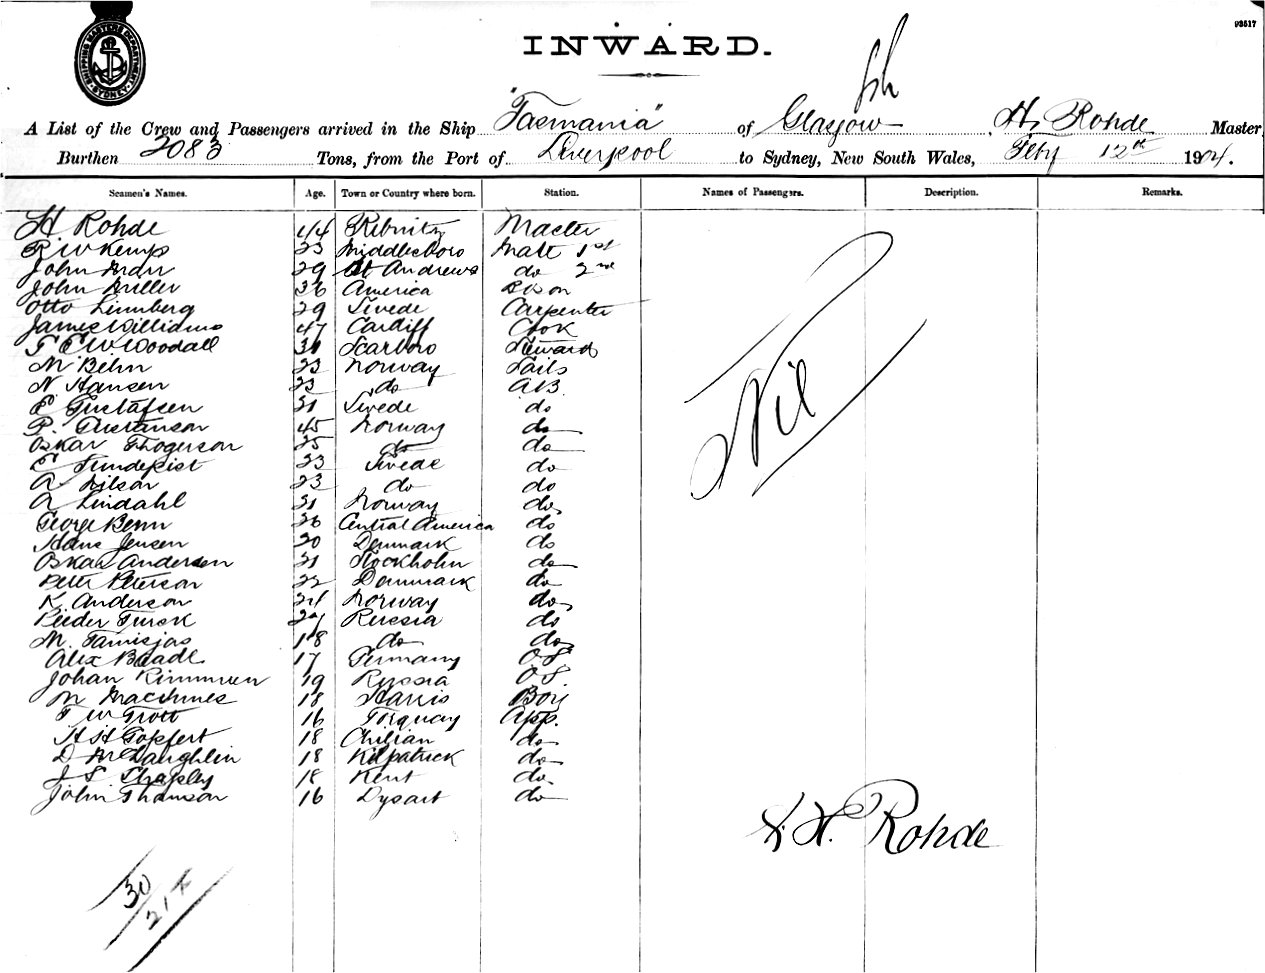 SHIPPING MASTER'S DEPARTMENT SYDNEY
93517
INWARD.
A List of the Crew and Passengers arrived in the Ship "Tasmania" of Glasgow, H. Rohde Master
Burthen 2083 Tons, from the Port of Liverpool to Sydney, New South Wales, Feby 12th 1904.
Seamen's Names. Age. Town or Country where born. Station. Names of Passengers. Description. Remarks.
H Rohde 44 Ribnitz Master
R W Kemp 23 Middlesboro Mate 1st
John Marr 29 St Andrews do 2nd
John Miller 36 America
Otto Linnberg 29 Swede Carpenter
James Williams 47 Cardiff Cook
W. Woodall 31 Scarboro Steward
M Behn 23 Norway Sails
N Hansen 23 do AB
E. Gustafsen 21 Swede do
P. Gustanson 45 Norway do
Oskar Thogerson 25 do do
E 23 Swede do
A Nilson 23 do do
A Lindahl 21 Norway do
George Benn 26 Central America do
Hans Jensen 20 Denmark do
Oskar Andersen 21 Stockholm do
Peter Peterson 22 Dennmark do
K. Anderson 24 Norway do
Peeder Tursk 24 Russia do
M. 18 do do
Alex 17 Germany O.S
Johan 19 Russia O.S
M MacInnes 18 Harris Boy
F W Trott 16 Torquay App.
H H Topfert 18 Chilian do
D McLaughlin 18 Kilpatrick do
J S Shapley 18 Kent do
John Thomson 16 Dysart do
Nil
H. Rohde
30